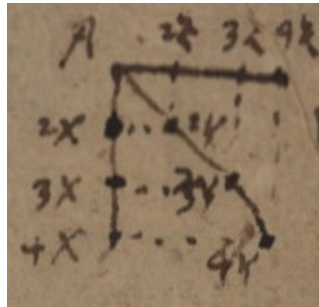 A 2Z 3Z 4Z
2X 2Y
3X 3Y
4X 4Y